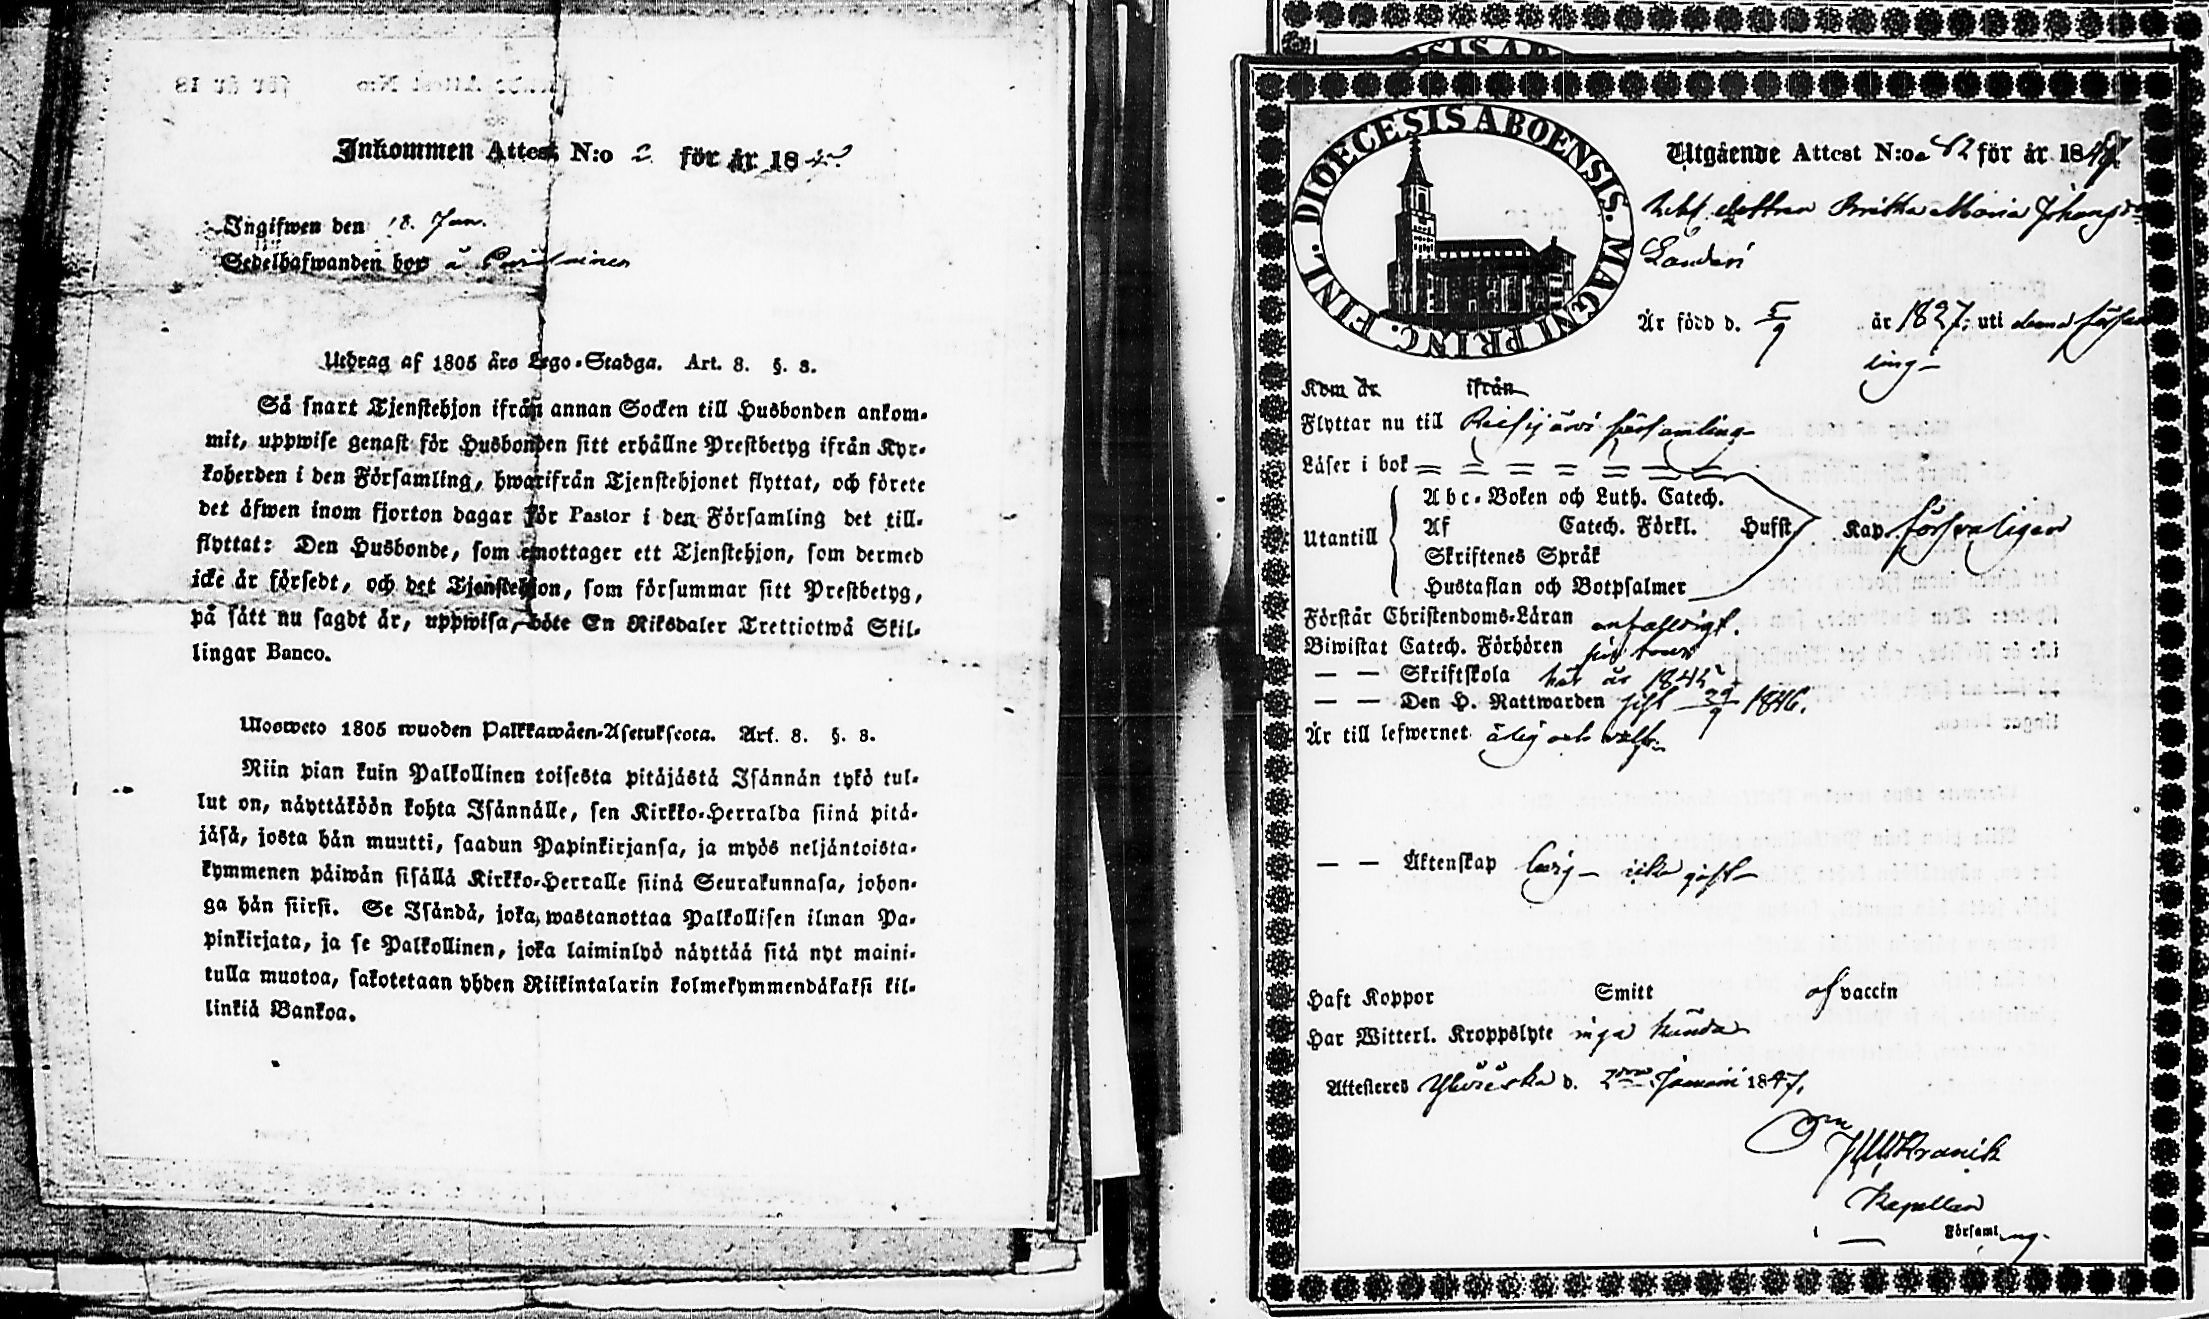 Inkommen Attest N:o 2 för år 18
Ingifwen den 18. Jan.
Sedelhafwanden bor å
Utdrag af 1805 års Lego-Stadga. Art. 8. §. 8.
Så snart Tjenstehjon ifrån annan Socken till Husbonden ankom-
mit, uppwise genast för Husbonden sitt erhållne Prestbetyg ifrån Kyr-
koherden i den Församling, hwarifrån Tjenstehjonet flyttat, och förete
det äfwen inom fjorton dagar för Pastor i den Församling det till-
flyttat: Den Husbonde, som emottager ett Tjenstehjon, som dermed
icke är försedt, och det Tjenstehjon, som försummar sitt Prestbetyg,
på sätt nu sagdt är, uppwisa, böte En Riksdaler Trettiotwå Skil-
lingar Banco.
Ulosweto 1805 wuoden Palkkawäen-Asetuksesta. Art. 8. §. 8.
Niin pian kuin Palkollinen toisesta pitäjästä Isännän tykö tul-
lut on, näyttäköön kohta Isännälle, sen Kirkko-Herralda siinä pitä-
jäsä, josta hän muutti, saadun Papinkirjansa, ja myös neljäntoista-
kymmenen päiwän sisällä Kirkko-Herralle siinä Seurakunnasa, johon-
ga hän siirsi. Se Isändä, joka wastanottaa Palkollisen ilman Pa-
pinkirjata, ja se Palkollinen, joka laiminlyö näyttää sitä nyt maini-
tulla muotoa, sakotetaan yhden Riikintalarin kolmekymmendäkaksi kil-
linkiä Bankoa.
DIOECESIS ABOENSIS. MAGNI PRINC. FINL.
Utgående Attest N:o 12 för år 1847
dottren Britha Maria Johansd
Är född d. 5/9 år 1827. uti denna försam
ling
Kom år ifrån
Flyttar nu till Reisjärvi församling
Läser i bok
Abc-Boken och Luth. Catech.
Utantill Af Catech. Förkl. Hufst. Kap. försvarligen
Skriftenes Språk
Hustaflan och Botpsalmer
Förstår Christendoms-Läran enfaldigt.
Biwistat Catech. Förhören
— — Skriftskola här år 1845
— — Den H. Nattwarden sist 1846.
Är till lefwernet ärlig och
— — Äktenskap ledig — icke gift
Haft Koppor Smitt af vaccin
Har Witterl. Kroppslyte inga kända
Attesteras Ylivieska d. 2 Januari 1847.
Kapellan
i — Församling.